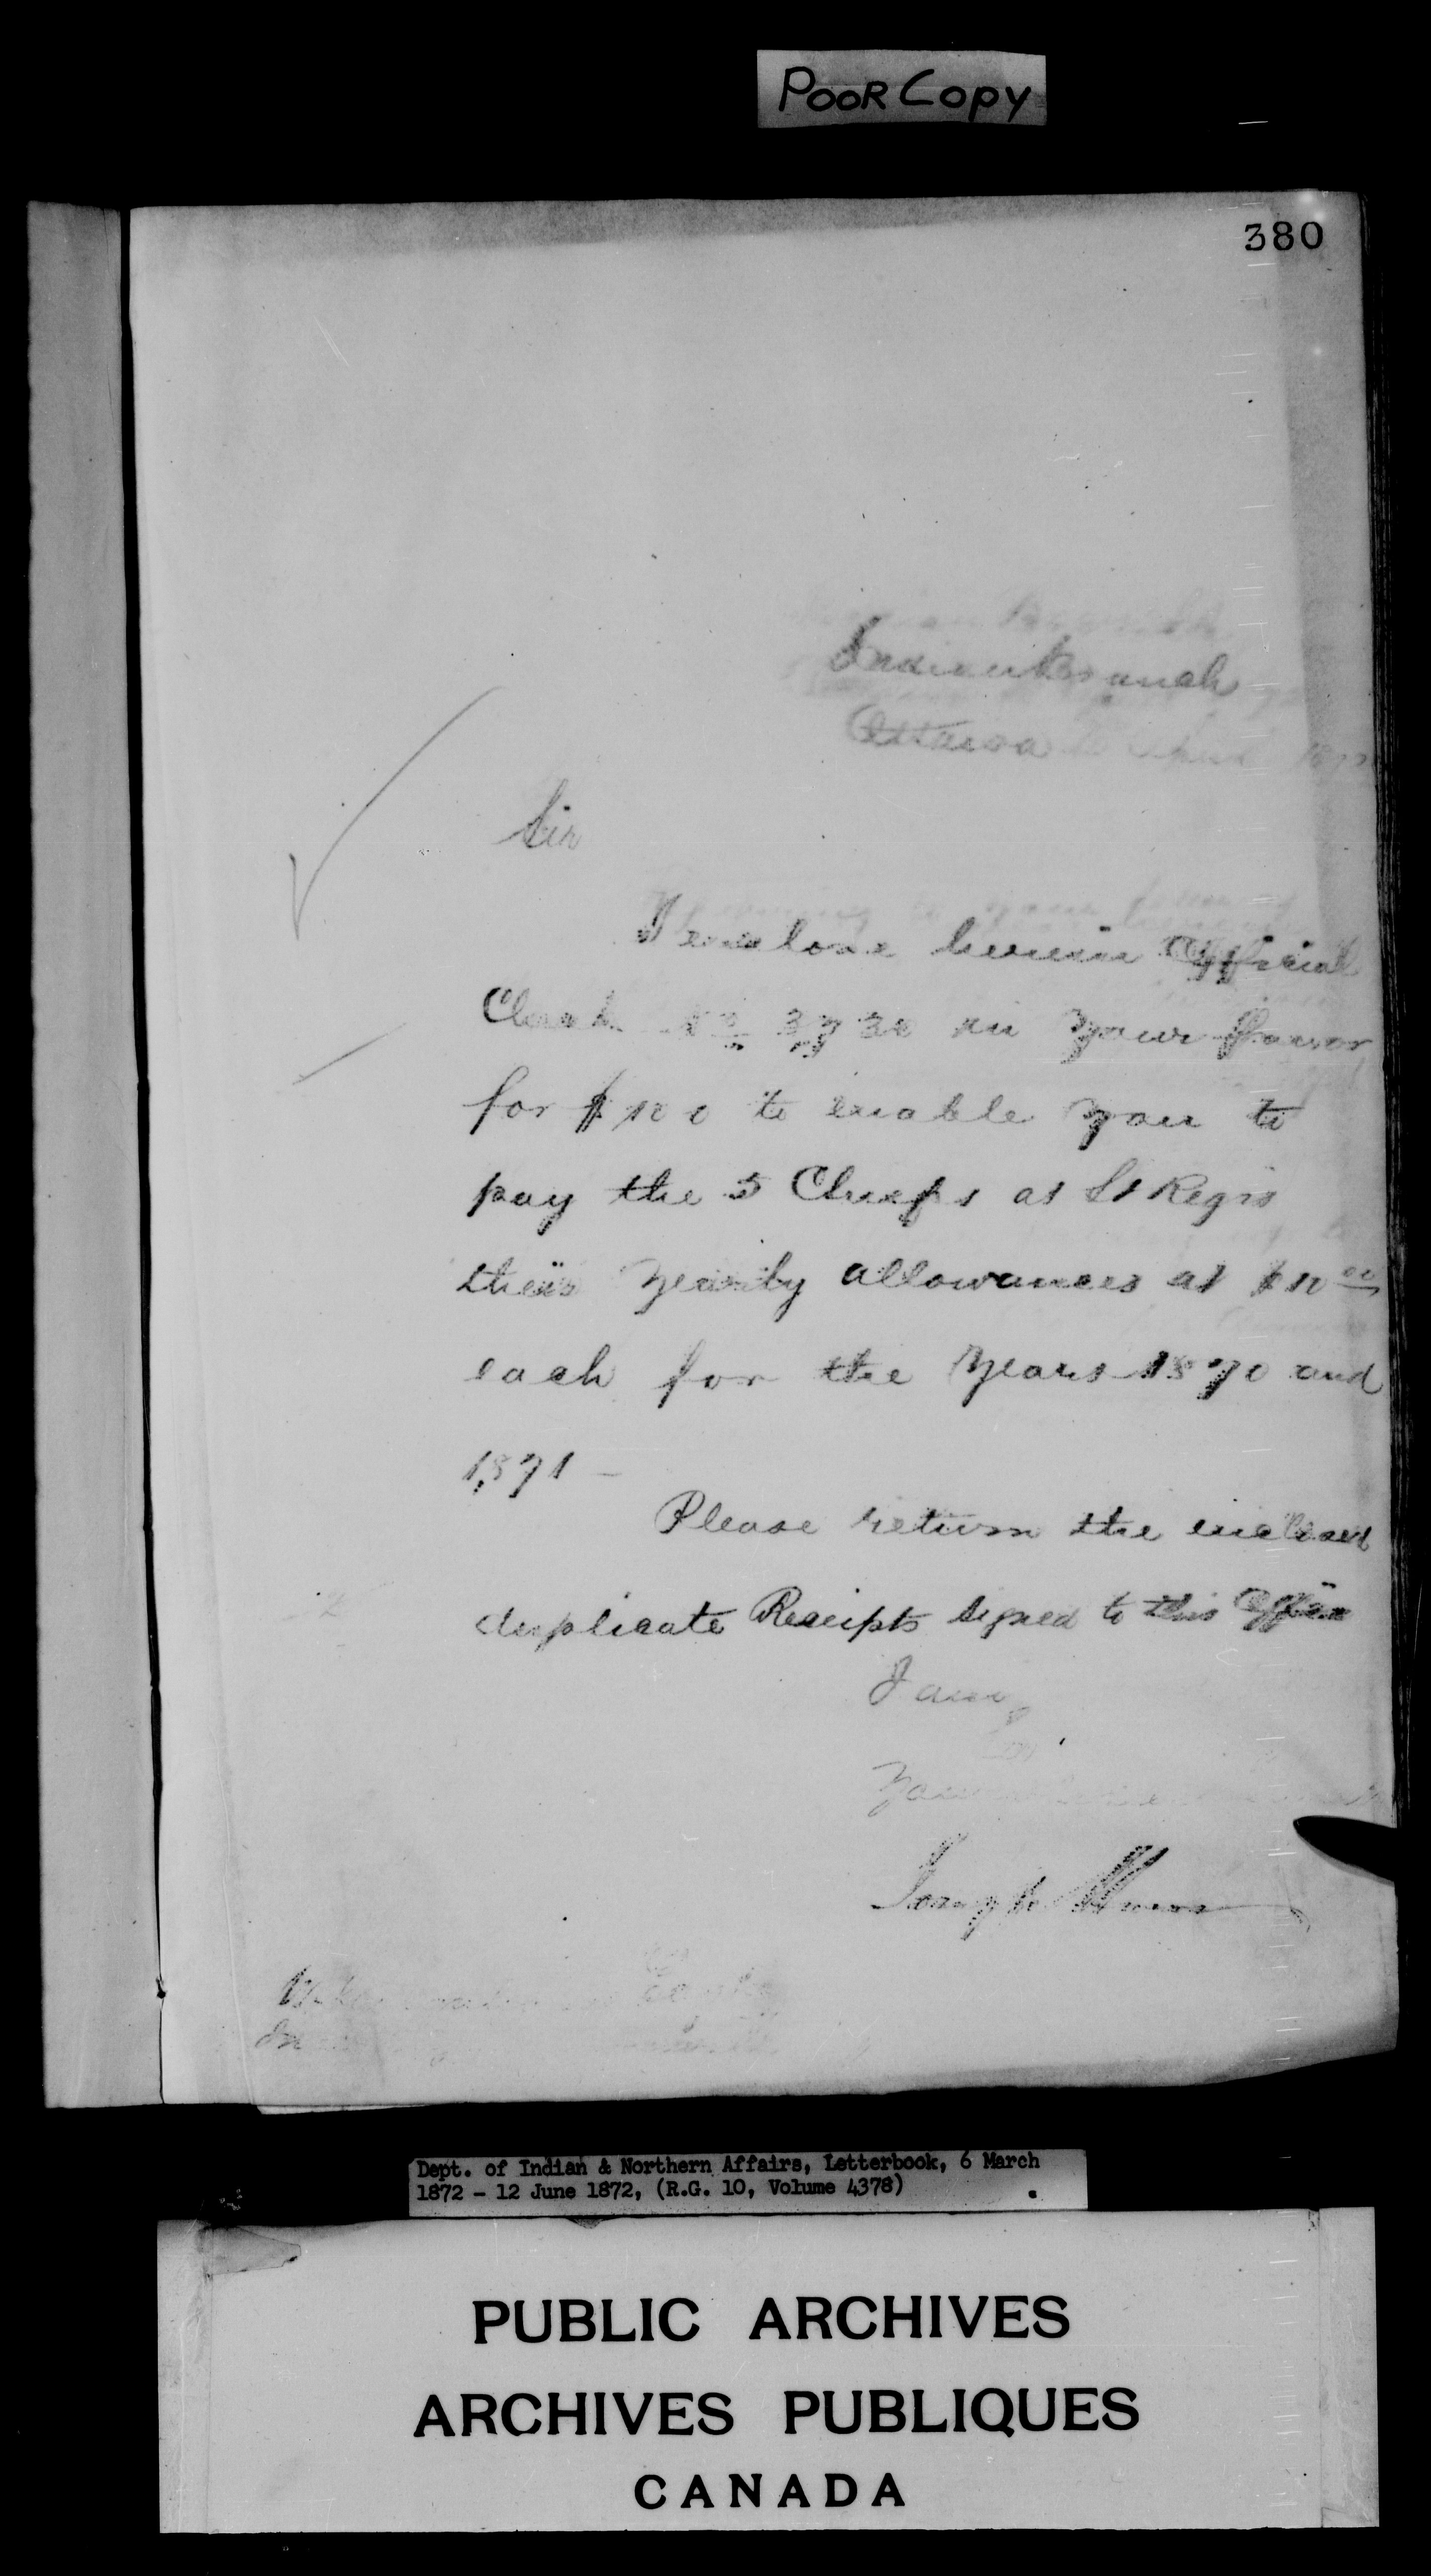 POOR COPY
380
Indian Branch
Ottawa April 1872
Sir
I enclose herein Official
Check No in your favor
for $100 to enable you to
pay the 5 Chiefs at St Regis
their yearly allowances at $10 00
each for the years 1870 and
1871 –
Please return the inclosed
duplicate Receipts signed to this Office
I am,
Your
Joseph Howe
Dept. of Indian & Northern Affairs, Letterbook, 6 March
1872 - 12 June 1872, (R.G. 10, Volume 4378)
PUBLIC ARCHIVES
ARCHIVES PUBLIQUES
CANADA